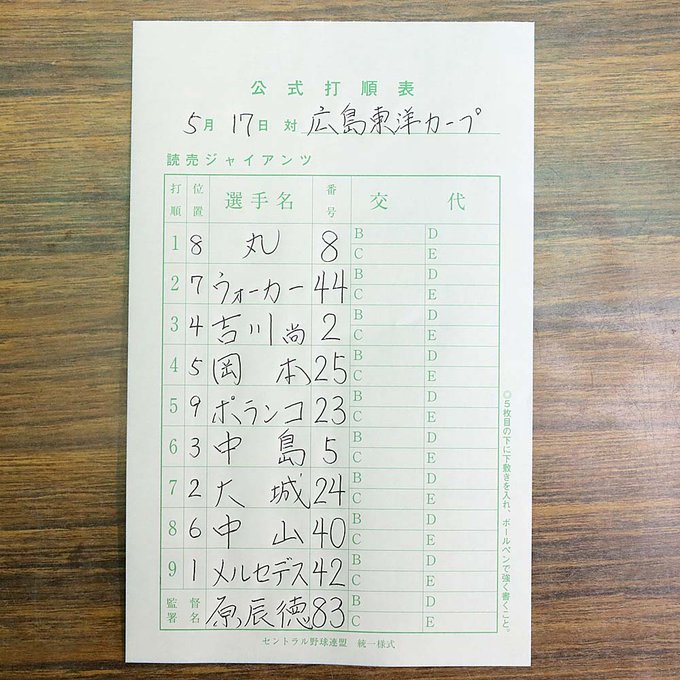 公式打順表
5月17日 対 広島東洋カープ
読売ジャイアンツ
打順 位置 選手名 番号 交代
1 8 丸 8 B D C E
2 7 ウォーカー 44 B D C E
3 4 吉川尚 2 B D C E
4 5 岡本 25 B D C E
5 9 ポランコ 23 B D C E
6 3 中島 5 B D C E
7 2 大城 24 B D C E
8 6 中山 40 B D C E
9 1 メルセデス 42 B D C E
監督署名 原辰徳 83 B D C E
◎5枚目の下に下敷きを入れ、ボールペンで強く書くこと。
セントラル野球連盟 統一様式